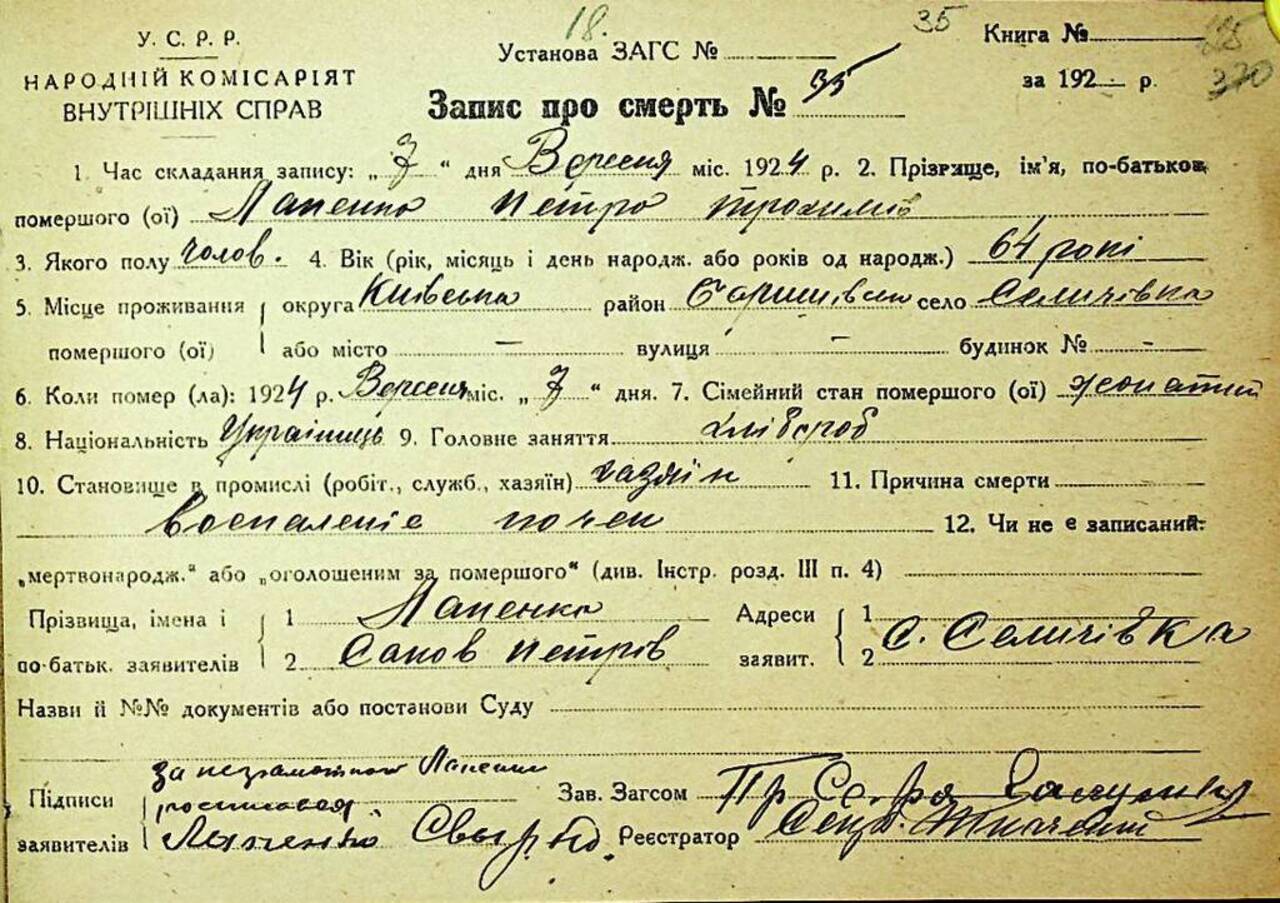 18. 35
У. С. Р. Р. Установа ЗАГС № Книга №
НАРОДНІЙ КОМІСАРІЯТ за 192 р. 370
ВНУТРІШНІХ СПРАВ Запис про смерть № 35
1. Час складання запису: „7“ дня Вересня міс. 1924 р. 2. Прізвище, ім'я, по-батьков.
помершого (ої) Лапенко Петро Трохимів
3. Якого полу чолов. 4. Вік (рік, місяць і день народж. або років од народж.) 64 років
5. Місце проживання округа Київська район село Селичівка
помершого (ої) або місто — вулиця — будинок № —
6. Коли помер (ла): 1924 р. Вересня міс. „7“ дня. 7. Сімейний стан помершого (ої) жонатий
8. Національність Українець 9. Головне заняття хлібороб
10. Становище в промислі (робіт., служб., хазяїн) хазяїн 11. Причина смерти
воспаленіе почек 12. Чи не є записаний:
„мертвонародж.“ або „оголошеним за помершого“ (див. Інстр. розд. III п. 4)
Прізвища, імена і 1 Лапенко Адреси 1
по-батьк. заявителів 2 Петрів заявит. 2 с. Селичівка
Назви й №№ документів або постанови Суду
за неграмотного Лапенка
Підписи росписался Зав. Загсом
заявителів Лапенко Реєстратор